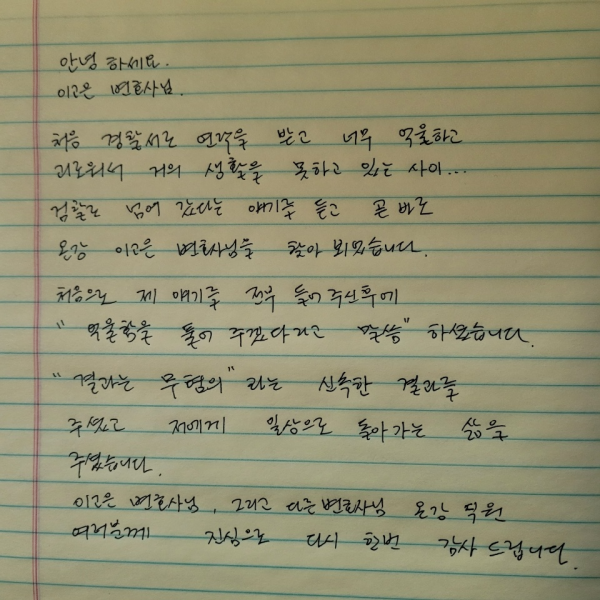 안녕 하세요.
이고은 변호사님.
처음 경찰서로 연락을 받고 너무 억울하고
괴로워서 거의 생활을 못하고 있는 사이...
검찰로 넘어 갔다는 얘기를 듣고 곧 바로
온강 이고은 변호사님을 찾아 뵈었습니다.
처음으로 제 얘기를 전부 들어 주신후에
"억울함을 풀어 주겠다라고 말씀" 하셨습니다.
"결과는 무혐의" 라는 신속한 결과를
주셨고 저에게 일상으로 돌아가는 삶을
주셨습니다.
이고은 변호사님, 그리고 다른변호사님 온강 직원
여러분께 진심으로 다시 한번 감사 드립니다.